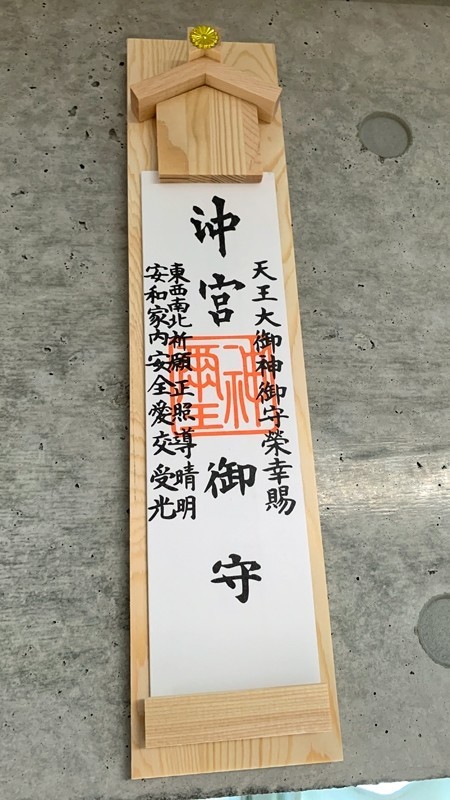 天王大御神御守榮幸賜
沖宮御守
東西南北祈願正照導晴明
安和家内安全愛交受光
神璽